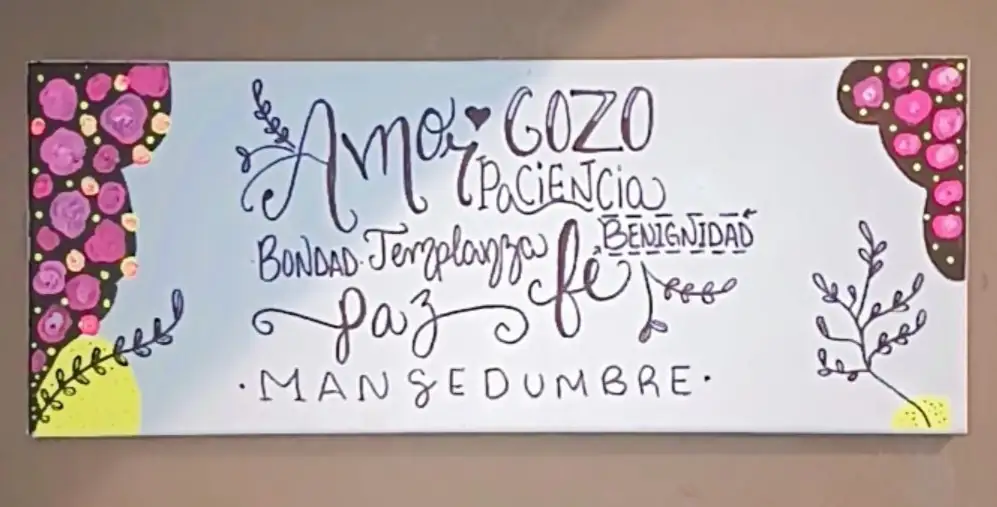 Amor GOZO
PACIENCIA
BONDAD · Templanza fe BENIGNIDAD
paz
· MANSEDUMBRE ·